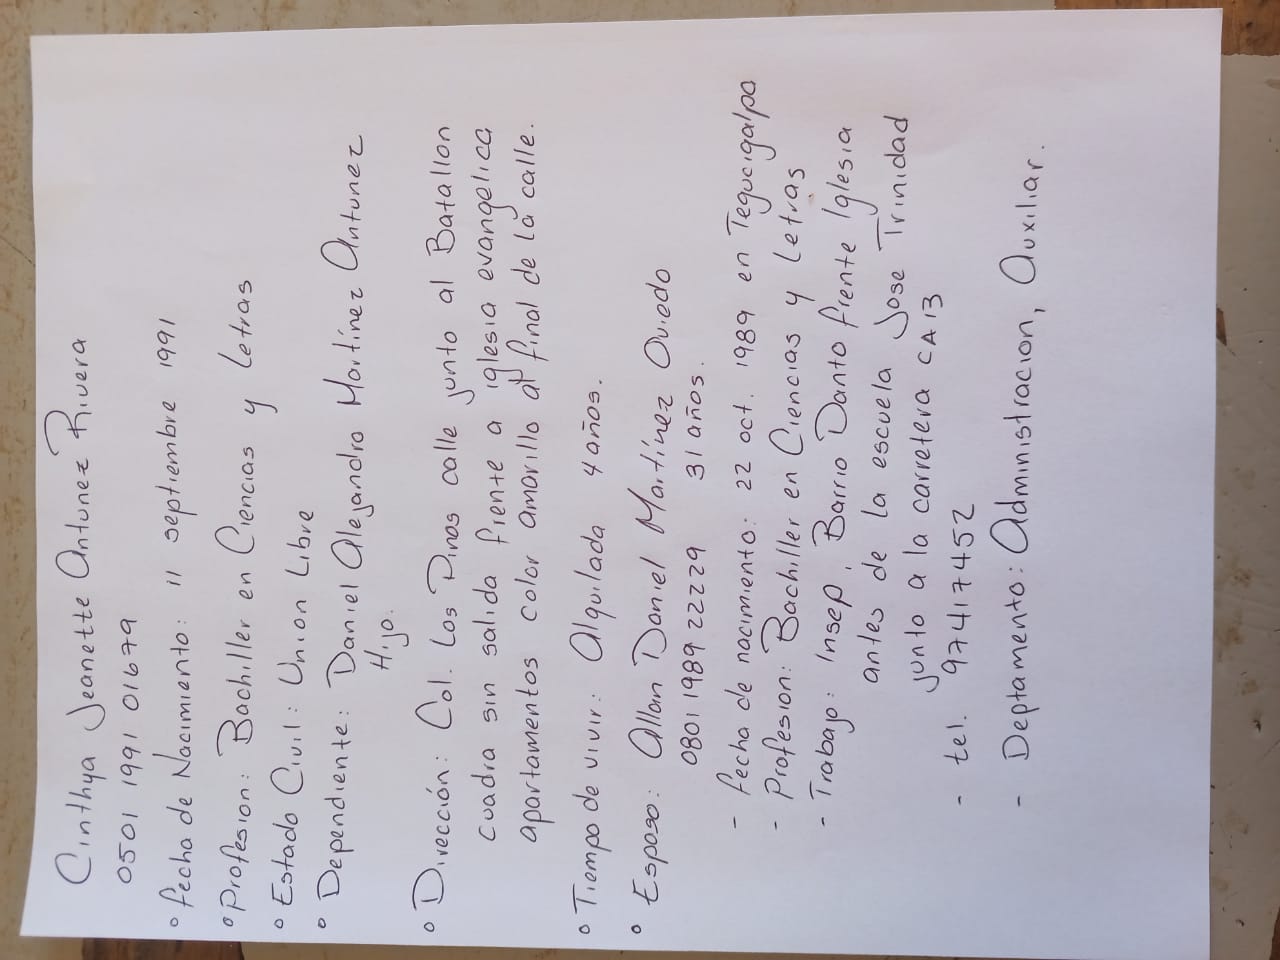 Cinthya Jeanette Antunez Rivera
0501 1991 01679
• fecha de Nacimiento: 11 septiembre 1991
• Profesion: Bachiller en Ciencias y Letras
• Estado Civil: Union Libre
• Dependiente: Daniel Alejandro Martínez Antunez
Hijo.
• Dirección: Col. Los Pinos calle junto al Batallon
cuadra sin salida frente a iglesia evangelica
apartamentos color amarillo al final de la calle.
• Tiempo de vivir: Alquilada 4 años.
• Esposo: Allan Daniel Martínez Oviedo
0801 1989 22229 31 años.
- fecha de nacimiento: 22 oct. 1989 en Tegucigalpa
- Profesion: Bachiller en Ciencias y Letras
- Trabajo: Insep, Barrio Danto frente Iglesia
antes de la escuela Jose Trinidad
junto a la carretera CA 13
- tel. 97417452
- Deptamento: Administracion, Auxiliar.